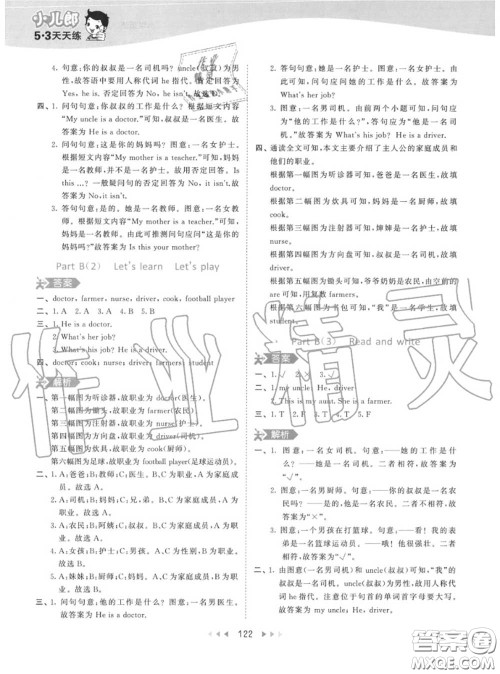 小儿郎
5·3天天练
4. 句意:你的叔叔是一名司机吗? uncle(叔叔)为男
性,故答语中要用人称代词 he 指代。肯定回答为
Yes, he is. 否定回答为 No, he isn't. 故选 A。
四、1. 问句句意:你叔叔的工作是什么? 根据短文内容
"My uncle is a doctor."可知,叔叔是一名医生。故
答案为 He is a doctor.
2. 问句句意:这是你的妈妈吗?
根据短文内容"My mother is a teacher."可知,妈妈
是一名教师,并不是一名护士。故用否定回答。Is
this ...? 一般疑问句的否定回答为 No, it isn't. 故
答案为 No, it isn't.
3. 答句句意:是的。她是一名教师。图意:一名女教
师。根据短文内容"My mother is a teacher."可知,
妈妈是一名教师。由此可推测问句应问"这是你的
妈妈吗?"故答案为 Is this your mother?
Part B(2) Let's learn Let's play
答案
一、doctor, farmer, nurse, driver, cook, football player
二、1. A 2. A 3. A 4. B 5. B
三、1. He is a doctor.
2. What's her job?
3. What's his job?
He is a driver.
四、doctor; cook; nurse; driver; farmers; student
解析
一、第一幅图为听诊器,故职业为 doctor(医生)。
第二幅图为锄头,故职业为 farmer(农民)。
第三幅图为注射器,故职业为 nurse(护士)。
第四幅图为方向盘,故职业为 driver(司机)。
第五幅图为炊具,故职业为 cook(厨师)。
第六幅图为足球,故职业为 football player(足球运动员)。
二、1. A:爸爸;B:妈妈;C:医生。A、B 为家庭成员,C 为职
业。故选 A。
2. A:司机;B:妈妈;C:兄,弟。B、C 为家庭成员,A 为职
业。故选 A。
3. A:农民;B:阿姨;C:叔叔。B、C 为家庭成员,A 为职
业。故选 A。
4. A:女孩;B:护士;C:男孩。A、C 为性别,B 为职业。
故选 B。
5. A:妹妹;B:厨师;C:司机。B、C 为职业,A 为家庭成
员。故选 A。
三、1. 问句句意:他的工作是什么? 图意:一名男医生。
故答案为 He is a doctor.
2. 答句句意:她是一名护士。图意:一名女护士。由
此可知,问句应问她的工作是什么。故答案为
What's her job?
3. 图意:一名男司机。由前面两个小题可知,问句应
为"他的工作是什么?",答句应为"他是一名司机。"
故答案为 What's his job? He is a driver.
四、通读全文可知,本文主要介绍了主人公的家庭成员和
他们的职业。
根据第一幅图为听诊器可知,爸爸是一名医生,故填
doctor。
根据第二幅图为炊具可知,妈妈是一名厨师,故填
cook。
根据第三幅图为注射器可知,婶婶是一名护士,故填
nurse。
根据第四幅图为方向盘可知,叔叔是一名司机,故填
driver。
根据第五幅图为锄头可知,爷爷奶奶是农民,由空前的
are 可知,用复数 farmers。
根据第六幅图为书包可知,"我"是一名学生,故填
student。
Part B(3) Read and write
答案
一、1. √ 2. × 3. √
二、1. my uncle; He, a driver
2. This is my aunt. She is a farmer.
三、1. T 2. F 3. T 4. T 5. F
解析
一、1. 图意:一名女司机。句意:——她的工作是什
么? ——她是一名司机。二者相符,故答案为
"√"。
2. 图意:一名男厨师。句意:——你的叔叔是一名农
民吗? ——是的,他是一名农民。二者不相符,故答
案为"×"。
3. 图意:一个男孩在打篮球。句意:——看! 我的表
弟是一名篮球运动员。——哇! 他很强壮。二者
相符,故答案为"√"。
二、1. 由图意(一名男司机)和 uncle(叔叔)可知,"我"的
叔叔是一名司机。uncle(叔叔)为男性,故用人称代
词 he 指代。注意位于句首的单词首字母要大写。
故答案为 my uncle; He, a driver。
122
作业精灵
答案圈
MXQE.COM